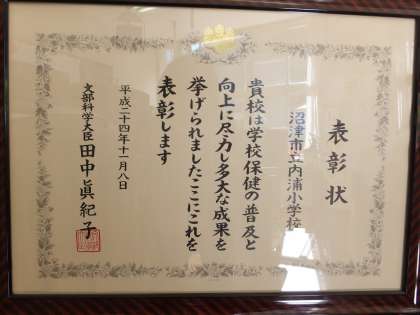 表彰状
沼津市立内浦小学校
貴校は学校保健の普及と
向上に尽力し多大な成果を
挙げられましたここにこれを
表彰します
平成二十四年十一月八日
文部科学大臣 田中眞紀子